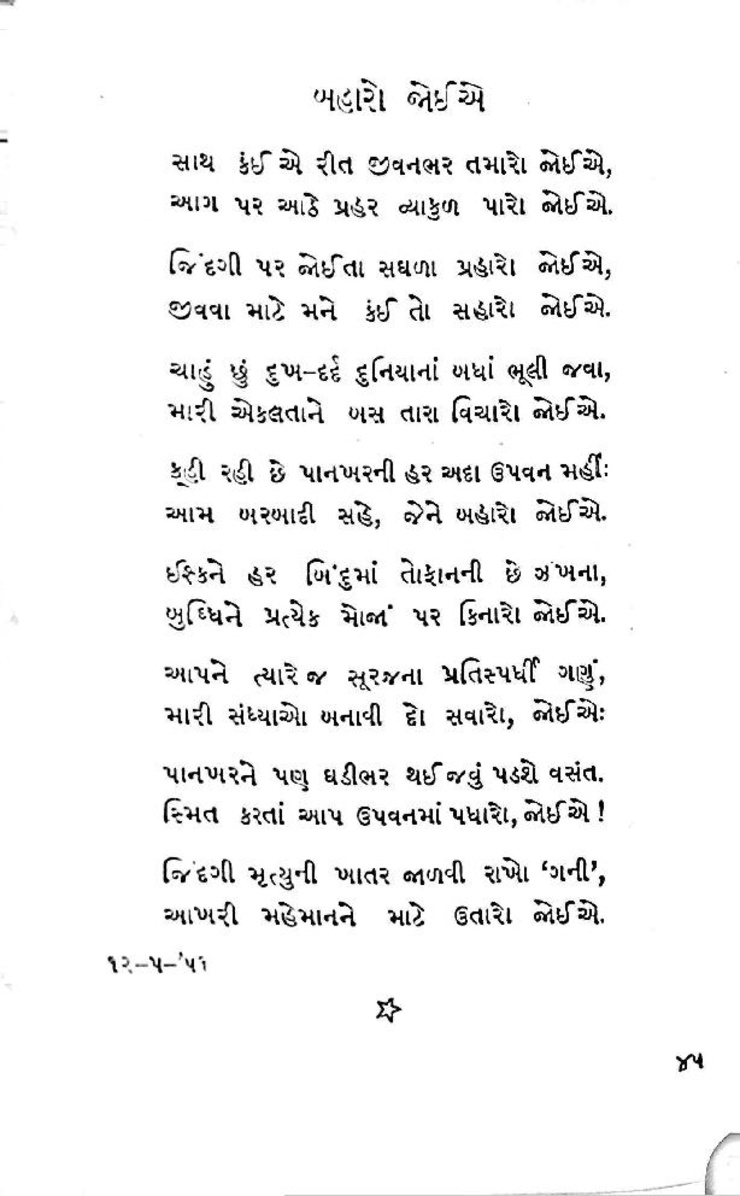 બહારો જોઈએ
સાથ કંઈ એ રીત જીવનભર તમારો જોઈએ,
આગ પર આઠે પ્રહર વ્યાકુળ પારો જોઈએ.
જિંદગી પર જોઈતા સઘળા પ્રહારો જોઈએ,
જીવવા માટે મને કંઈ તો સહારો જોઈએ.
ચાહું છું દુખ–દર્દ દુનિયાનાં બધાં ભૂલી જવા,
મારી એકલતાને બસ તારા વિચારો જોઈએ.
કહી રહી છે પાનખરની હર અદા ઉપવન મહીંઃ
આમ બરબાદી સહે, જેને બહારો જોઈએ.
ઈશ્કને હર બિંદુમાં તોફાનની છે ઝંખના,
બુધ્ધિને પ્રત્યેક મોજાં પર કિનારો જોઈએ.
આપને ત્યારે જ સૂરજના પ્રતિસ્પર્ધી ગણું,
મારી સંધ્યાઓ બનાવી દો સવારો, જોઈએઃ
પાનખરને પણ ઘડીભર થઈ જવું પડશે વસંત.
સ્મિત કરતાં આપ ઉપવનમાં પધારો, જોઈએ !
જિંદગી મૃત્યુની ખાતર જાળવી રાખો ‘ગની’,
આખરી મહેમાનને માટે ઉતારો જોઈએ.
૧૨–૫–’૫૧
૪૫